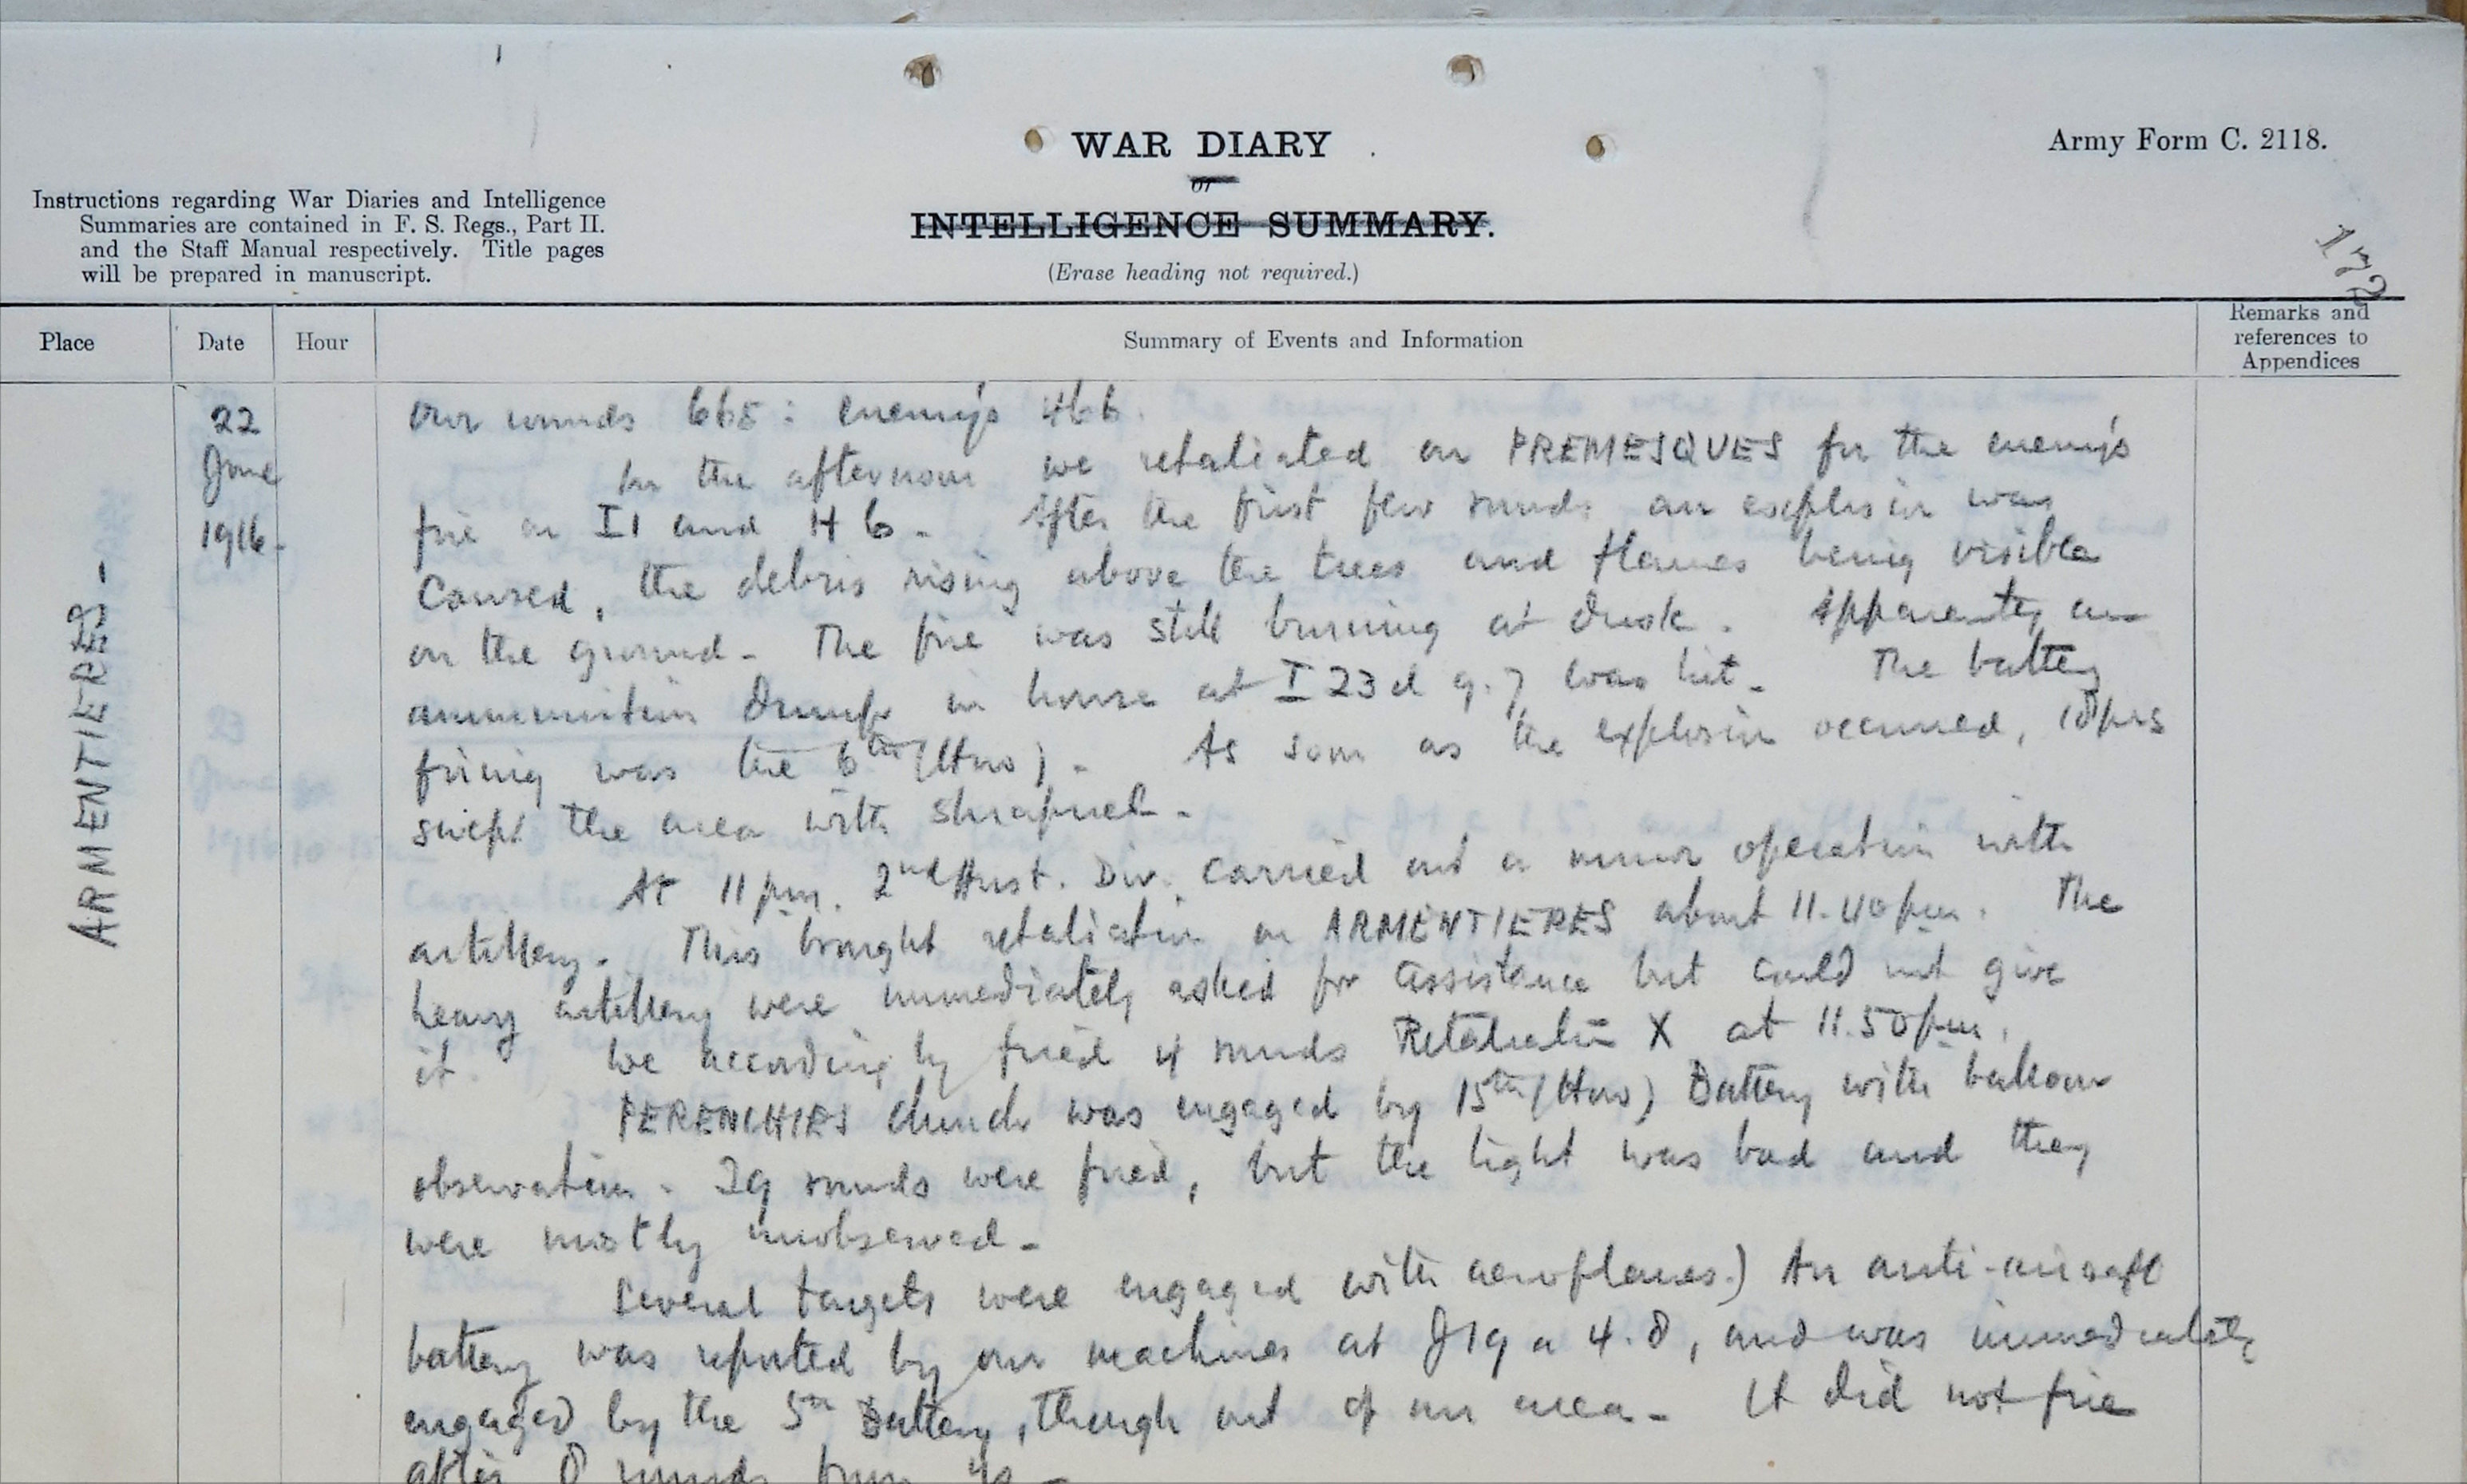 WAR DIARY
Army Form C. 2118.
or
INTELLIGENCE SUMMARY.
(Erase heading not required.)
Instructions regarding War Diaries and Intelligence
Summaries are contained in F. S. Regs., Part II.
and the Staff Manual respectively. Title pages
will be prepared in manuscript.
172
Place
Date
Hour
Summary of Events and Information
Remarks and
references to
Appendices
ARMENTIERES -
22
June
1916.
Our rounds 665: enemy's 466.
In the afternoon we retaliated on PREMESQUES for the enemy's
fire on I1 and H6. After the first few rounds an explosion was
caused, the debris rising above the trees and flames being visible
on the ground. The fire was still burning at dusk. Apparently an
ammunition dump in house at I 23 d 9.7 was hit. The battery
firing was the 6th (How). As soon as the explosion occurred, 18prs
swept the area with shrapnel.
At 11 pm. 2nd Aust. Div. carried out a minor operation with
artillery. This brought retaliation on ARMENTIERES about 11.40 pm. The
heavy artillery were immediately asked for assistance but could not give
it. We accordingly fired 4 rounds Retaliation X at 11.50 pm.
PERENCHIES church was engaged by 15th (How) Battery with balloon
observation. 29 rounds were fired, but the light was bad and they
were mostly unobserved.
Several targets were engaged with aeroplanes.) An anti-aircraft
battery was reported by our machines at J19 a 4.8, and was immediately
engaged by the 5th Battery, though out of our area. It did not fire
after 8 rounds from us.